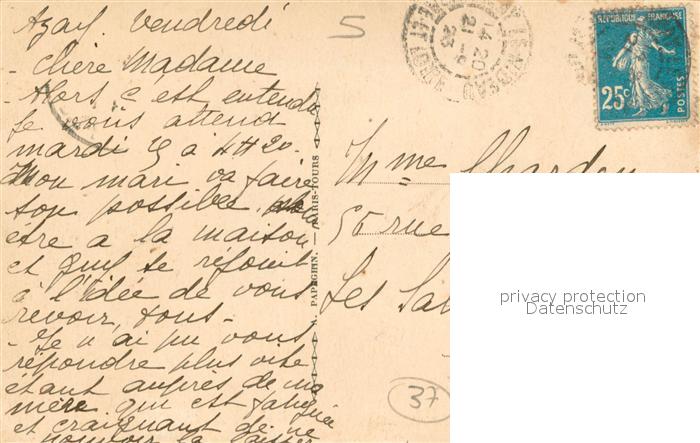 Azay. Vendredi
- Chère Madame
- Alors c est entendu
Je vous attend
mardi 25 a 4H20.
Mon mari va faire
son possible,
etre a la maison
et Guy se réjouit
à l'idée de vous
revoir, tous -
- Je n ai pu vous
répondre plus vite
étant auprès de ma
mère qui est fatiguée
et craignant de ne
pouvoir la laisser
5
14 20
21 -9
23
INDRE ET
RÉPUBLIQUE FRANÇAISE
25c
POSTES
PAPEGHIN. — PARIS-TOURS
Mme Chardon
rue
Les
37
privacy protection
Datenschutz